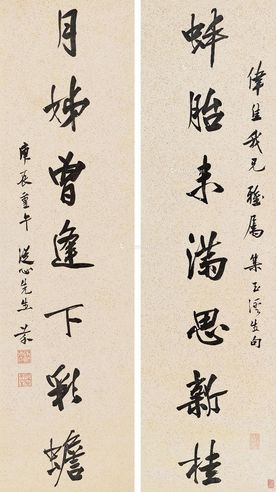 偉臣我兄雅屬 集玉溪生句
蚌胎未滿思新桂
月姊曾逢下彩蟾
庚辰重午 從心先生